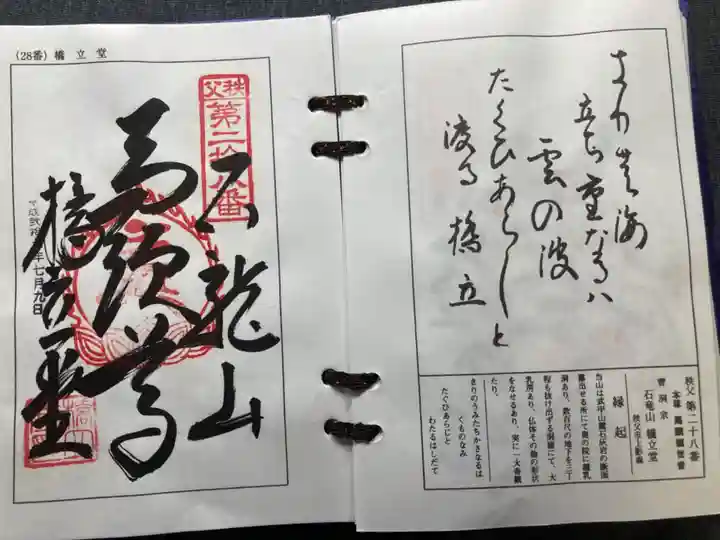 (28番) 橋立堂
秩父
第二拾八番
石龍山
馬頭尊
橋立堂
七月九日
きり
海
立ち重なるハ
雲の波
たくひあらしと
渡る橋立
秩父第二十八番
本尊 馬頭観世音
曹洞宗
石竜山 橋立堂
秩父市上影森
縁起
当山は武甲山麓石灰岩の断面
露出せる所にて奥の院に鍾乳
洞あり、数百代の地下を三丁
程も抜け出ずる洞窟にて、大
乳房あり、仏体その他の形状
をなせるあり、実に一大奇観
たり。
きりのうみたちかさなるは
くものなみ
たぐひあらじと
わたるはしたて